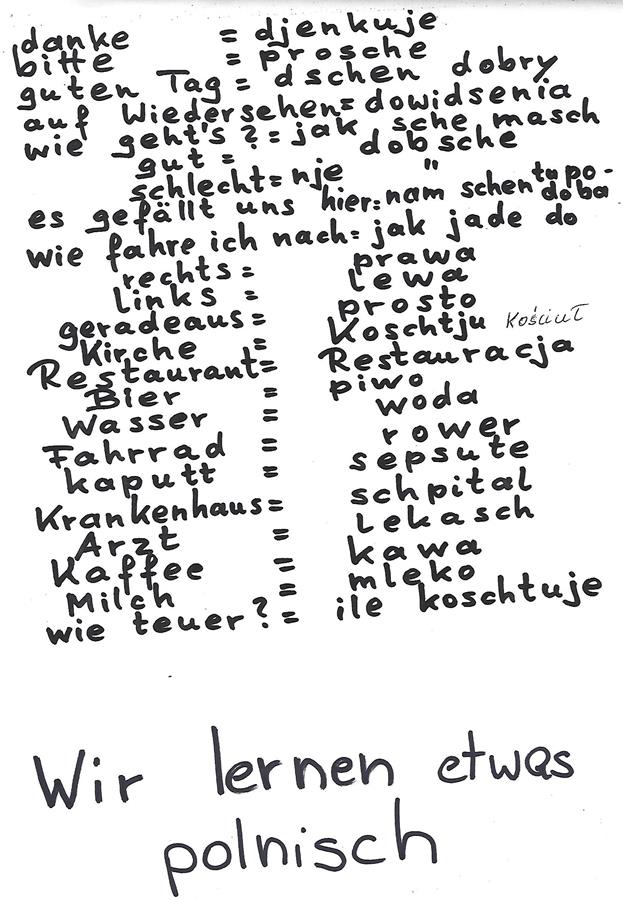 danke = djenkuje
bitte = prosche
guten Tag = dschen dobry
auf Wiedersehen = dowidsenia
wie geht's? = jak sche masch
gut = dobsche
schlecht = nje "
es gefällt uns hier: nam schen tu podoba
wie fahre ich nach = jak jade do
rechts = prawa
links = lewa
geradeaus = prosto
Kirche = Koschtju Kościuł
Restaurant = Restauracja
Bier = piwo
Wasser = woda
Fahrrad = rower
kaputt = sepsute
Krankenhaus = schpital
Arzt = Lekasch
Kaffee = kawa
Milch = mleko
wie teuer? = ile koschtuje
Wir lernen etwas
polnisch